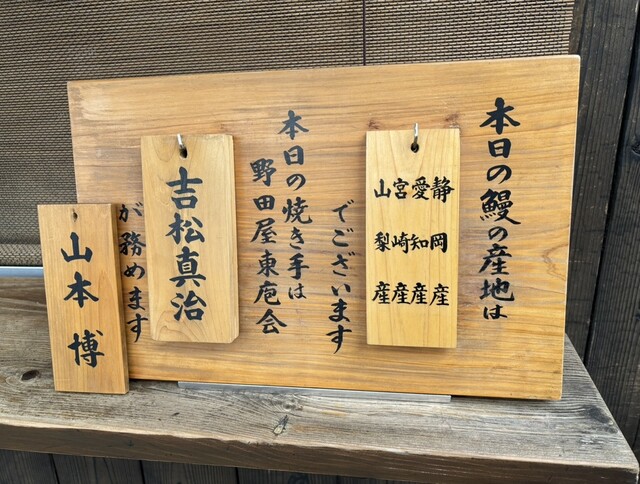 本日の鰻の産地は
静岡産
愛知産
宮崎産
山梨産
でございます
本日の焼き手は
野田屋東庖会
吉松真治
が務めます
山本博